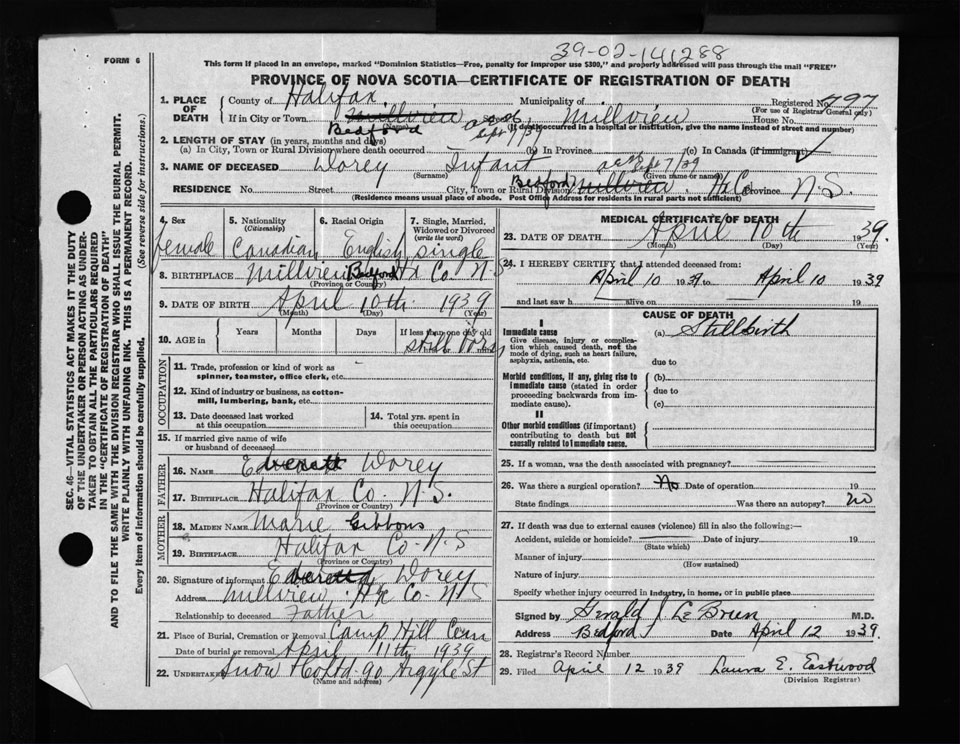 39-02-141288
FORM 6
This form if placed in an envelope, marked "Dominion Statistics—Free, penalty for improper use $300," and properly addressed will pass through the mail "FREE"
PROVINCE OF NOVA SCOTIA—CERTIFICATE OF REGISTRATION OF DEATH
1. PLACE OF DEATH
County of Halifax Municipality of Registered No. 797
(For use of Registrar General only)
If in City or Town Millview Millview House No.
(Name) (If death occurred in a hospital or institution, give the name instead of street and number)
Bedford Sept 7/39
2. LENGTH OF STAY (in years, months and days)
(a) In City, Town or Rural Division where death occurred (b) In Province (c) In Canada (if immigrant)
3. NAME OF DECEASED Dorey Infant Sept 7/39
(Surname) (Given name or names)
RESIDENCE No. Street City, Town or Rural Division Bedford Millview. Hx Co Province N.S.
(Residence means usual place of abode. Post Office Address for residents in rural parts not sufficient)
4. Sex 5. Nationality (Citizenship) 6. Racial Origin 7. Single, Married, Widowed or Divorced (write the word)
female Canadian English single
8. BIRTHPLACE Millview Bedford Hx Co. N-S
(Province or Country)
9. DATE OF BIRTH April 10th 1939
(Month) (Day) (Year)
10. AGE in Years Months Days If less than one day old
still born
OCCUPATION
11. Trade, profession or kind of work as spinner, teamster, office clerk, etc.
12. Kind of industry or business, as cotton-mill, lumbering, bank, etc.
13. Date deceased last worked at this occupation
14. Total yrs. spent in this occupation
15. If married give name of wife or husband of deceased
FATHER
16. Name Everett Dorey
17. Birthplace Halifax Co. N.S.
(Province or Country)
MOTHER
18. Maiden Name Marie Gibbons
19. Birthplace Halifax Co-N-S
(Province or Country)
20. Signature of informant Everett Dorey
Address Millview. Hx Co-N-S
Relationship to deceased Father
21. Place of Burial, Cremation or Removal Camp Hill Cem
Date of burial or removal April 11th 1939
22. Undertaker Snow & Co Ltd-90 Argyle St
(Name and address)
MEDICAL CERTIFICATE OF DEATH
23. DATE OF DEATH April 10th 1939.
(Month) (Day) (Year)
24. I HEREBY CERTIFY that I attended deceased from:
April 10 1939 to April 10 1939
and last saw h alive on 19
CAUSE OF DEATH
I
Immediate cause
Give disease, injury or complication which caused death, not the mode of dying, such as heart failure, asphyxia, asthenia, etc.
(a) Stillbirth
due to
Morbid conditions, if any, giving rise to immediate cause (stated in order proceeding backwards from immediate cause).
(b)
due to
(c)
II
Other morbid conditions (if important) contributing to death but not causally related to immediate cause.
25. If a woman, was the death associated with pregnancy?
26. Was there a surgical operation? No Date of operation 19
State findings Was there an autopsy? no
27. If death was due to external causes (violence) fill in also the following:—
Accident, suicide or homicide? Date of injury 19
(State which)
Manner of injury
(How sustained)
Nature of injury
Specify whether injury occurred in industry, in home, or in public place
Signed by Gerald J. LeBrun M.D.
Address Bedford Date April 12 1939.
28. Registrar's Record Number
29. Filed April 12 1939 Laura E. Eastwood
(Division Registrar)
SEC. 46—VITAL STATISTICS ACT MAKES IT THE DUTY
OF THE UNDERTAKER OR PERSON ACTING AS UNDER-
TAKER TO OBTAIN ALL THE PARTICULARS REQUIRED
IN THE "CERTIFICATE OF REGISTRATION OF DEATH"
AND TO FILE THE SAME WITH THE DIVISION REGISTRAR WHO SHALL ISSUE THE BURIAL PERMIT.
WRITE PLAINLY WITH UNFADING INK. THIS IS A PERMANENT RECORD.
Every item of information should be carefully supplied. (See reverse side for instructions.)